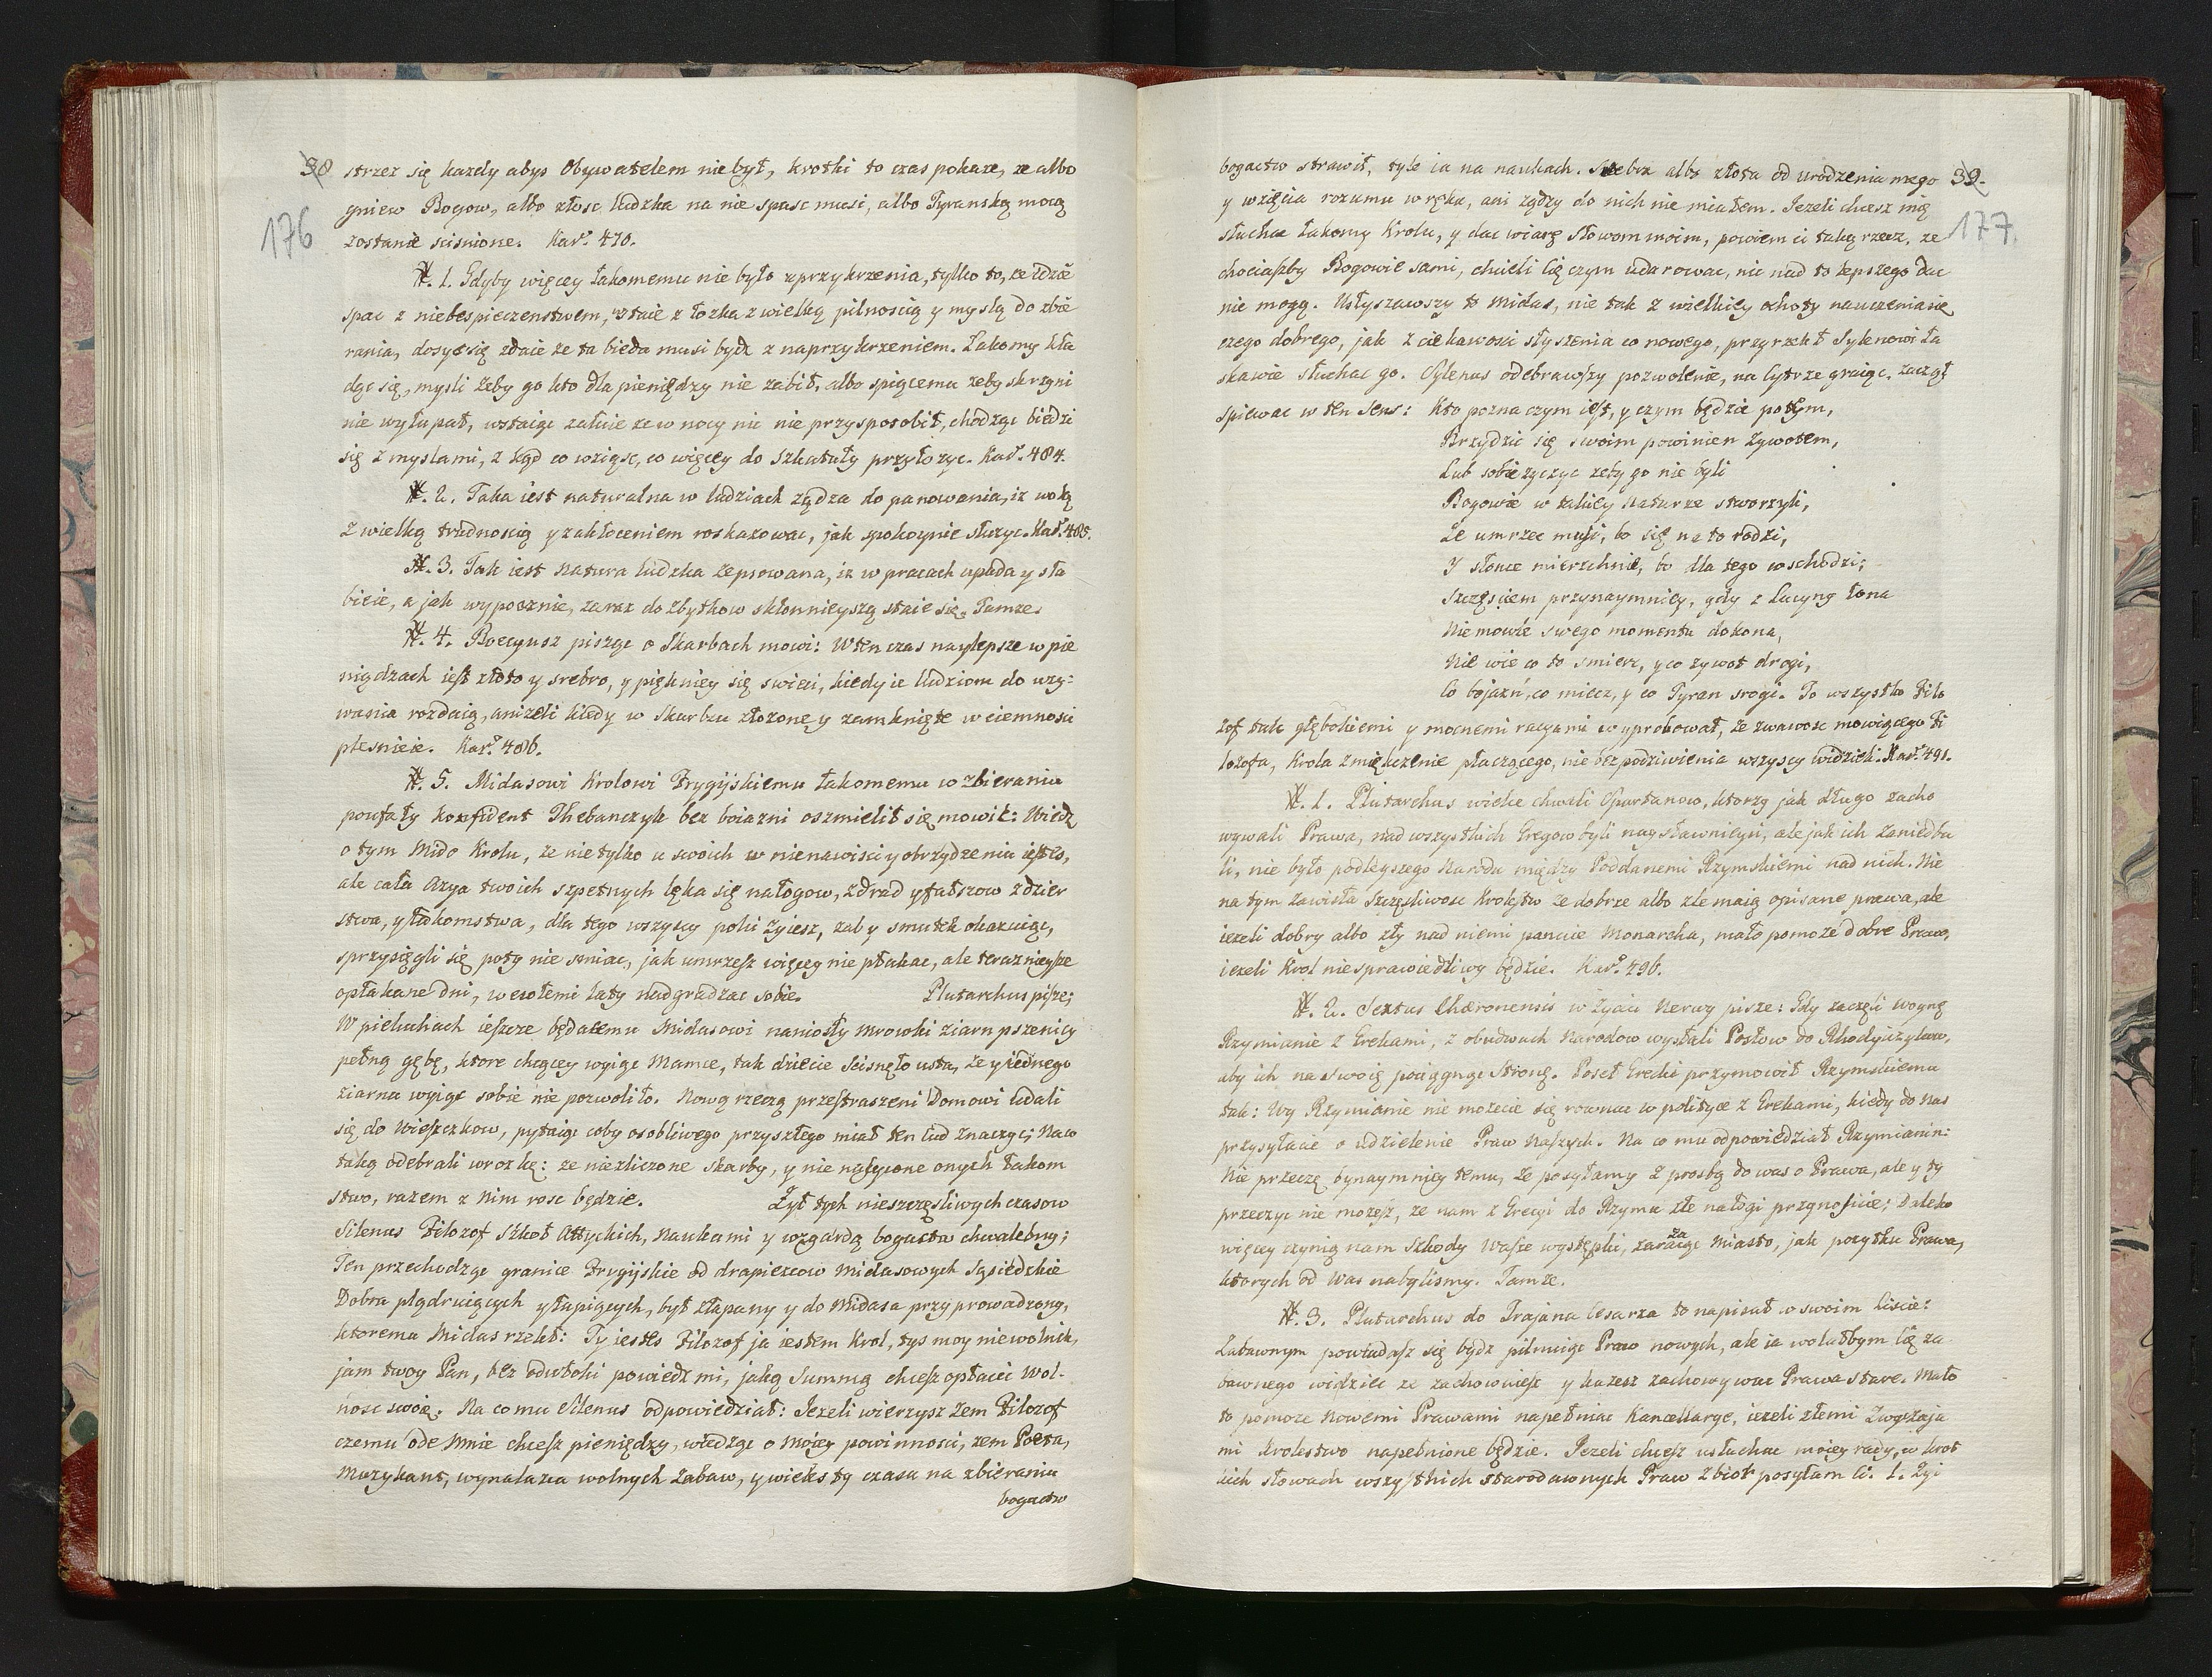 38 strzez się kazdy abys Obywatelem nie był, krotki to czas pokaze, ze albo
gniew Bogow, albo złosc ludzka na nie spasc musi, albo Tyranską mocą
176
zostanie scisnione. Kart. 470.
N. 1. Gdyby więcey łakomemu nie było uprzykrzenia, tylko to, ze idzie
spac z niebespieczenstwem, wstaie z łozka z wielką pilnoscią y myslą do zbie
rania, dosyc się zdaie ze ta bieda musi bydz z naprzykrzeniem. Łakomy kła
dąc się, mysli zeby go kto dla pieniędzy nie zabił, albo spiącemu zeby skrzyni
nie wyłupał, wstaiąc załuie ze w nocy nic nie przysposobił, chodząc biedzi
się z myslami, z kąd co wziąsc, co więcey do szkatuły przyłozyc. Kart. 484.
N. 2. Taka iest naturalna w ludziach ządza do panowania, iz wolą
z wielką trudnoscią y zakłoceniem roskazowac, jak spokoynie słuzyc. Kart. 485.
N. 3. Tak iest natura ludzka zepsowana, iz w pracach upada y sła
bieie, a jak wypocznie, zaraz do zbytkow skłonnieyszą staie się. Tamze.
N. 4. Boecyusz pisząc o Skarbach mowi: W ten czas naylepsze w pie
niądzach iest złoto y srebro, y piękniey się swieci, kiedy ie ludziom do uzy:
wania rozdaią, anizeli kiedy w Skarbcu złozone y zamknięte w ciemnosci
plesnieie. Kart. 486.
N. 5. Midasowi Krolowi Frygijskiemu łakomemu w zbieraniu
poufały konfident Thebanczyk bez boiazni oszmielił się mowić: Wiedz
o tym Mido Krolu, ze nie tylko u swoich w nienawisci y obrzydzeniu iestes,
ale cała Azya twoich szpetnych lęka się nałogow, zdrad y fałszow zdzier
stwa, y łakomstwa, dla tego wszyscy poki zyiesz, zal y smutek okazuiąc,
sprzysięgli się poty nie smiac, jak umrzesz więcey nie płakac, ale teraznieysze
opłakane dni, wesołemi laty nadgradzac sobie. Plutarchus pisze;
W pieluchach ieszcze będącemu Midasowi naniosły mrowki ziarn pszenicy
pełną gębę, ktore chcącey wyiąc Mamce, tak dziecie scisnęło usta, ze y iednego
ziarna wyiąc sobie nie pozwoliło. Nową rzeczą przestraszeni Domowi udali
się do wieszczkow, pytaiąc coby osobliwego przyszłego miał ten cud znaczyc; Na co
taką odebrali wrozkę: ze niezliczone skarby, y nie nasycone onych łakom
stwo, razem z nim rosc będzie. Zył tych nieszczęsliwych czasow
Silenus Filozof Szkoł Attyckich, Naukami y wzgardą bogactw chwalebny;
Ten przechodząc granice Frygijskie od drapiezcow Midasowych Sąsiedzkie
Dobra plądruiących y łupiących, był złapany y do Midasa przyprowadzony,
ktoremu Midas rzekł: Ty iestes Filozof ja iestem Krol, tys moy niewolnik,
jam twoy Pan, bez odwłoki powiedz mi, jaką Summą chcesz opłacic wol-
nosc swoię. Na co mu Silenus odpowiedział: Jezeli wierzysz zem Filozof
czemu ode mnie chcesz pieniędzy, wiedząc o moiey powinnosci, zem Poeta,
Muzykant, wynalazca wolnych zabaw, y wieleś ty czasu na zbieraniu
bogactw
bogactw strawił, tyle ia na naukach. Srebra albo złota od urodzenia mego 39.
y wzięcia rozumu w ręku, ani ządzy do nich nie miałem. Jezeli chcesz mię
słuchac łakomy Krolu, y dac wiarę słowom moim, powiem ci taką rzecz, ze
177.
chociaszby Bogowie sami, chcieli cię czym udarowac, nic nad to lepszego dac
nie mogą. Usłyszawszy to Midas, nie tak z wielkiey ochoty nauczenia się
czego dobrego, jak z ciekawosci słyszenia co nowego, przyrzekł Sylenowi ła
skawie słuchac go. Sylenus odebrawszy pozwolenie, na Cytrze graiąc, zaczął
spiewac w ten sens: Kto pozna czym iest, y czym będzie potym,
Brzydzic się swoim powinien zywotem,
Lub sobie zyczyc zeby go nie byli
Bogowie w takiey naturze stworzyli,
Ze umrzec musi, bo się na to rodzi,
Y słonce mierzchnie, bo dla tego wschodzi;
Szczęsciem przynaymniey, gdy z Lucyny łona
Niemowle swego momentu dokona,
Nie wie co to smierc, y co zywot drogi,
Co bojazń, co miecz, y co Tyran srogi. To wszystko Filo
zof tak głębokiemi y mocnemi racyami wyprobował, ze zwawosc mowiącego Fi
lozofa, Krola zmiękczenie płaczącego, nie bez podziwienia wszyscy widzieli. Kart. 491.
N. 1. Plutarchus wielce chwali Spartanow, ktorzy jak długo zacho
wywali Prawa, nad wszystkich Gregow byli naysławnieysi, ale jak ich zaniedba
li, nie było podleyszego Narodu między Poddanemi Rzymskiemi nad nich. Nie
na tym zawisła szczęsliwosc Krolestw ze dobrze albo zle maią opisane prawa, ale
iezeli dobry albo zły nad niemi panuie Monarcha, mało pomoze dobre Prawo,
iezeli Krol niesprawiedliwy będzie. Kart. 496.
N. 2. Sextus Chæronensis w Zyciu Nerwy pisze: Gdy zaczęli woynę
Rzymianie z Grekami, z obudwuch Narodow wysłali Posłow do Rhodyiczykow,
aby ich na swoię pociągnąc Stronę. Poseł Grecki przymowił Rzymskiemu
tak: Wy Rzymianie nie mozecie się rownac w polityce z Grekami, kiedy do nas
przysyłacie o udzielenie Praw Naszych. Na co mu odpowiedział Rzymianin:
Nie przeczę bynaymniey temu, ze posyłamy z prosbą do was o Prawa, ale y ty
przeczyc nie mozesz, ze nam z Grecyi do Rzymu złe nałogi przynosicie; Daleko
więcey czynią nam szkody Wasze występki, zarazaiąc Miasto, jak pozytku Prawa,
ktorych od Was nabylismy. Tamze.
N. 3. Plutarchus do Trajana Cesarza to napisał w swoim liscie:
Zabawnym powiadasz się bydz pilnuiąc Praw nowych, ale ia wolałbym cię za
bawnego widziec ze zachowuiesz y kazesz zachowywac Prawa stare. Mało
to pomoze Nowemi Prawami napełniac Kancellarye, iezeli złemi Zwyczaja
mi Krolestwo napełnione będzie. Jezeli chcesz usłuchac moiey rady, w krot
kich słowach wszystkich starodawnych Praw zbior posyłam Ci. 1. Zyi